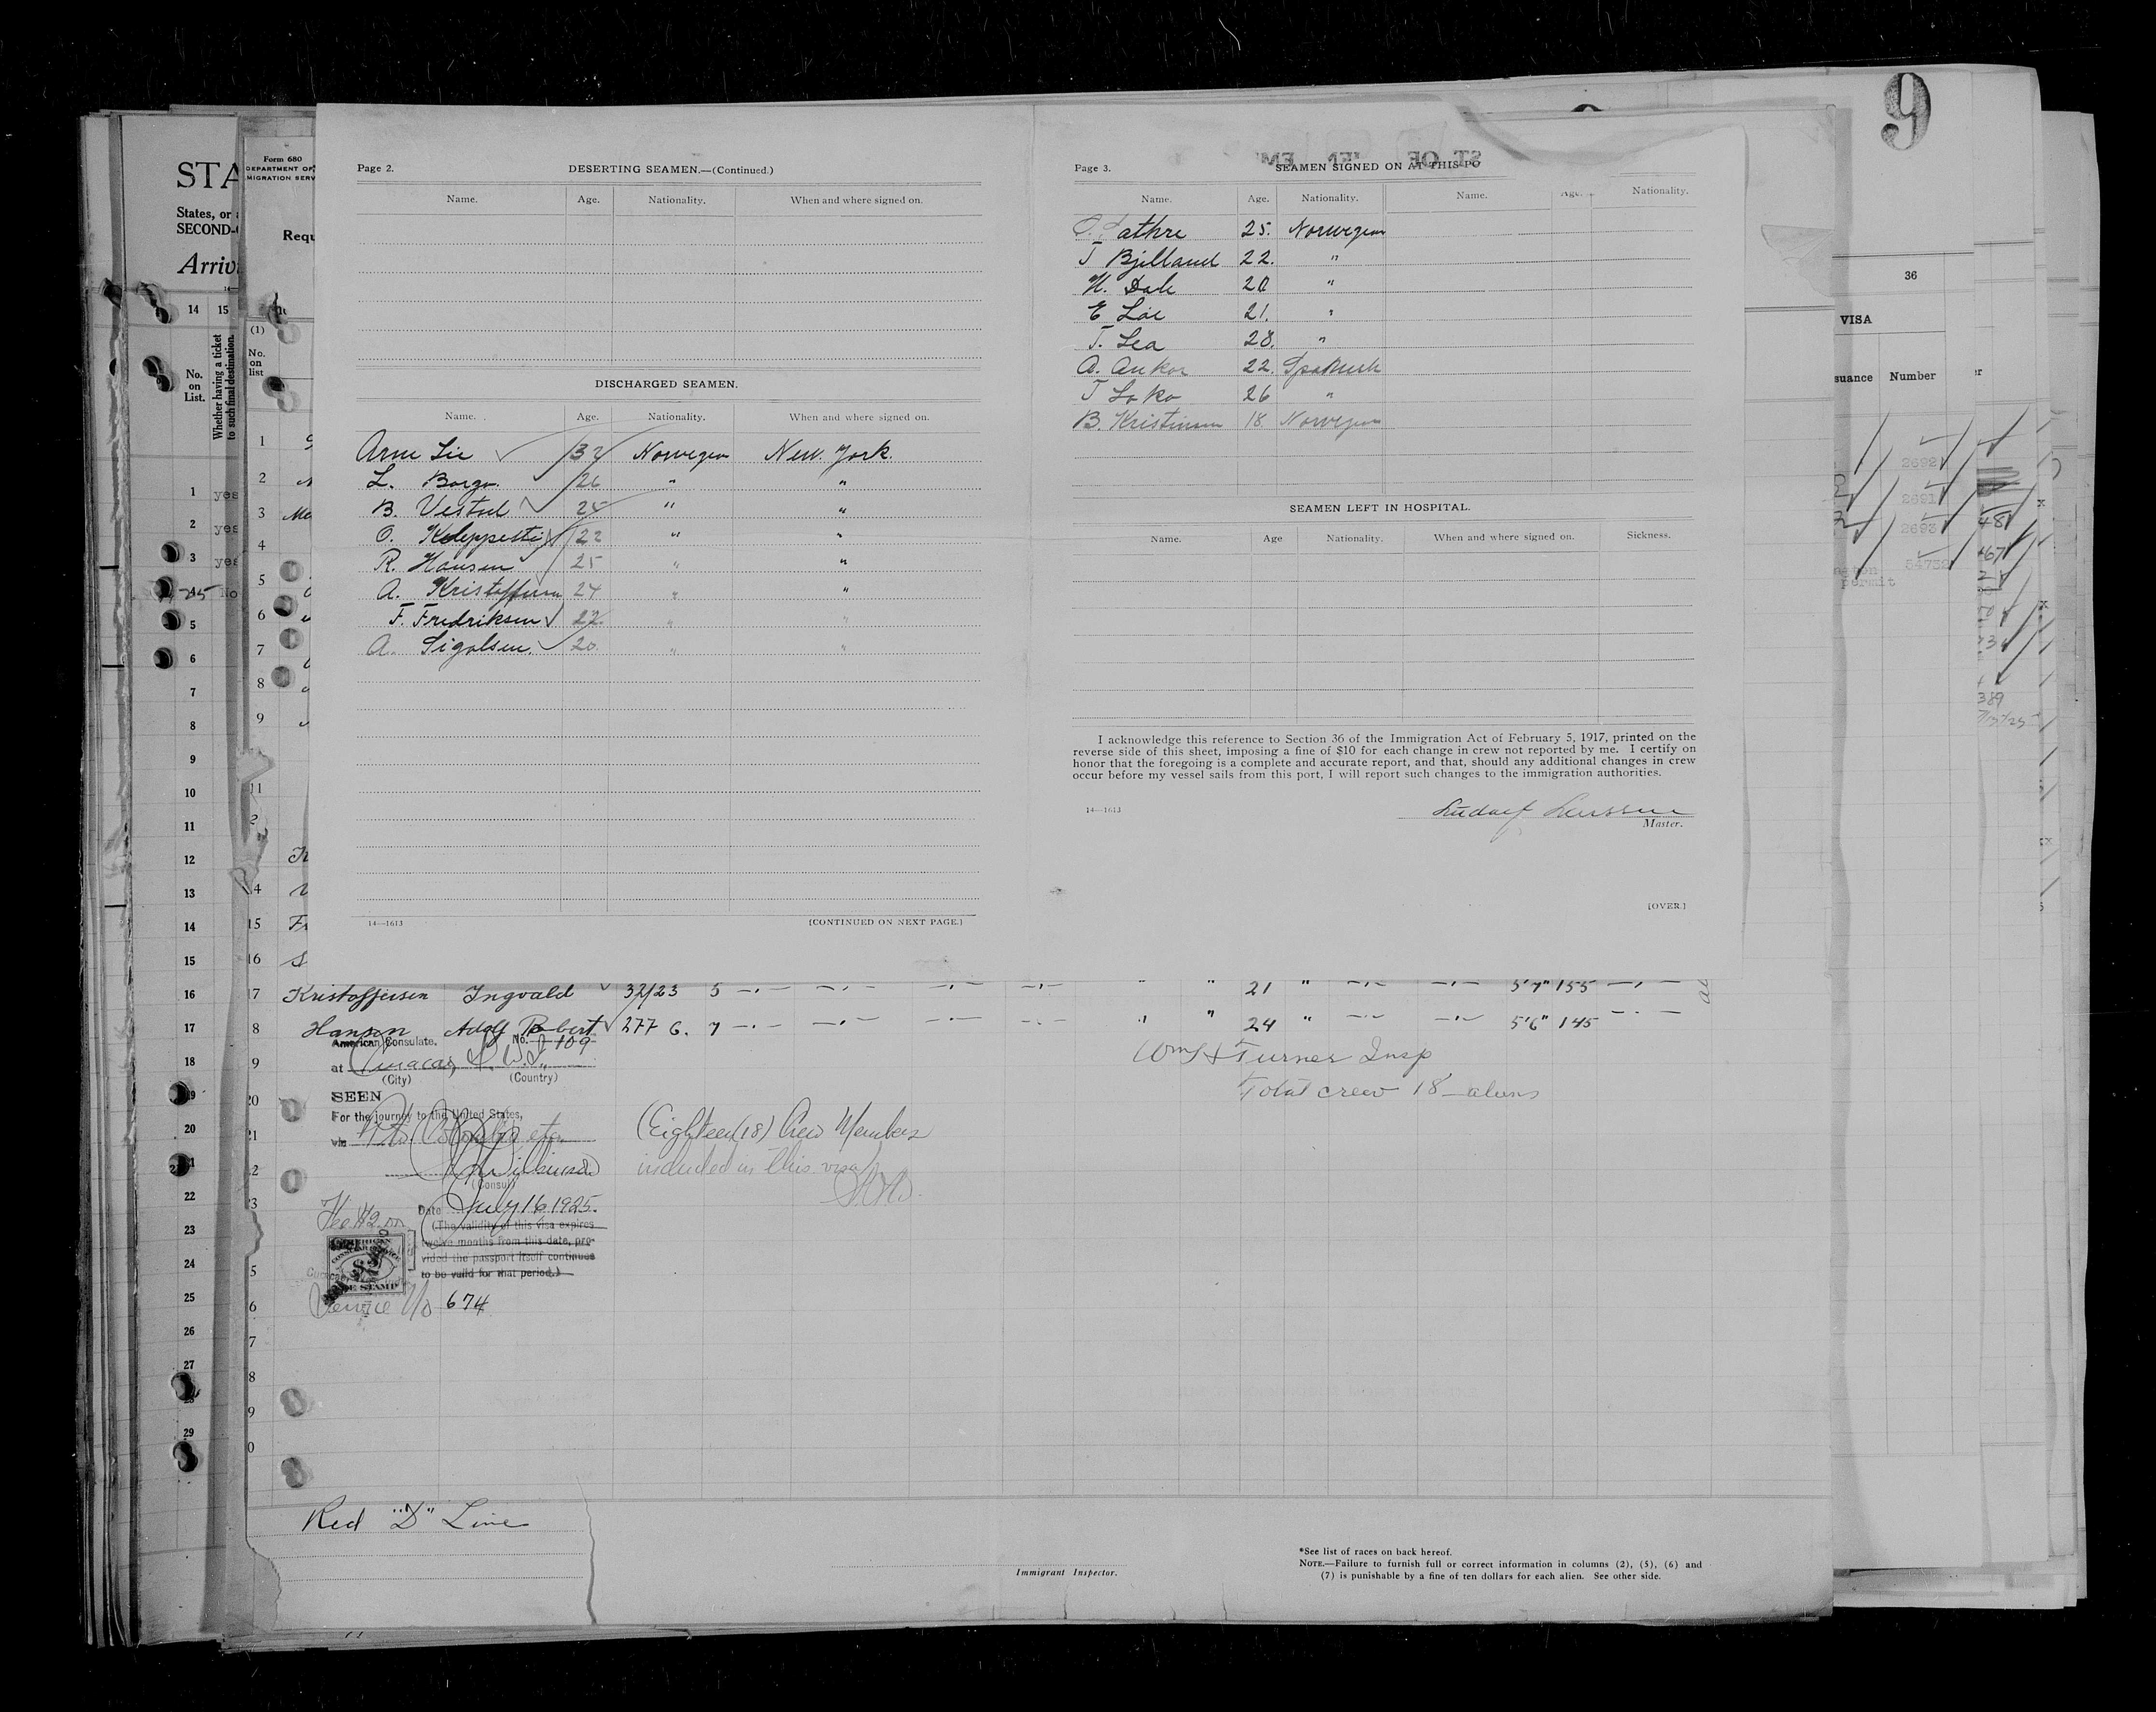 9
STA
States, or
SECOND-
Arriv
14 15
No. on List.
Whether having a ticket to such final destination.
1 yes
2 yes
3 yes
4 No
5
6
7
8
9
10
11
12
13
14
15
16
17
18
19
20
21
22
23
24
25
26
27
28
29
Form 680
DEPARTMENT OF
MIGRATION SERV
Requ
(1)
No. on list
1
2
3 Me
4
5
6
7
8
9
11
15 Fr
16
Page 2.
DESERTING SEAMEN.—(Continued.)
Name. Age. Nationality. When and where signed on.
DISCHARGED SEAMEN.
Name. Age. Nationality. When and where signed on.
Arne Lie 32 Norwegian New. York.
L. Borgo. 26 " "
B. Vestad 25 " "
O. 22 " "
R. Hansen 25 " "
A. Kristoffersen 24 " "
F. Fredriksen 22 " "
A. Sigalsen. 20 " "
14—1613
[CONTINUED ON NEXT PAGE.]
Page 3.
SEAMEN SIGNED ON AT THIS PO
Name. Age. Nationality. Name. Age. Nationality.
25. Norwegian
T Bjelland 22. "
H. Dale 20 "
E Loe 21. "
T. Lea 28. "
A. Ankor 22. Spanish
J Loko 26 "
B. Kristinsen 18 Norwegian
SEAMEN LEFT IN HOSPITAL.
Name. Age Nationality. When and where signed on. Sickness.
I acknowledge this reference to Section 36 of the Immigration Act of February 5, 1917, printed on the
reverse side of this sheet, imposing a fine of $10 for each change in crew not reported by me. I certify on
honor that the foregoing is a complete and accurate report, and that, should any additional changes in crew
occur before my vessel sails from this port, I will report such changes to the immigration authorities.
14—1613
Master.
[OVER.]
36
VISA
suance Number
2692
2691
2693
54752
permit
48
67
389
17 Kristoffersen Ingvald 32/23 5 " " 21 " 5'7" 155
8 Hansen Adolf Robert 277 6. 7 " " 24 " 5'6" 145
American Consulate. No. 109
at Curacao, D. W. I.
(City) (Country)
SEEN
For the journey to the United States,
via Pto. Colombia etc.
(Consul)
Date July 16 1925.
(The validity of this visa expires
twelve months from this date, pro-
vided the passport itself continues
to be valid for that period.)
Fee $2.00
AMERICAN
CONSULAR SERVICE
$2
FEE STAMP
Service No 674
Wm Turner Insp
Total crew 18 aliens
(Eighteen (18) Crew Members
included in this visa)
Red "D" Line
Immigrant Inspector.
*See list of races on back hereof.
NOTE.—Failure to furnish full or correct information in columns (2), (5), (6) and
(7) is punishable by a fine of ten dollars for each alien. See other side.